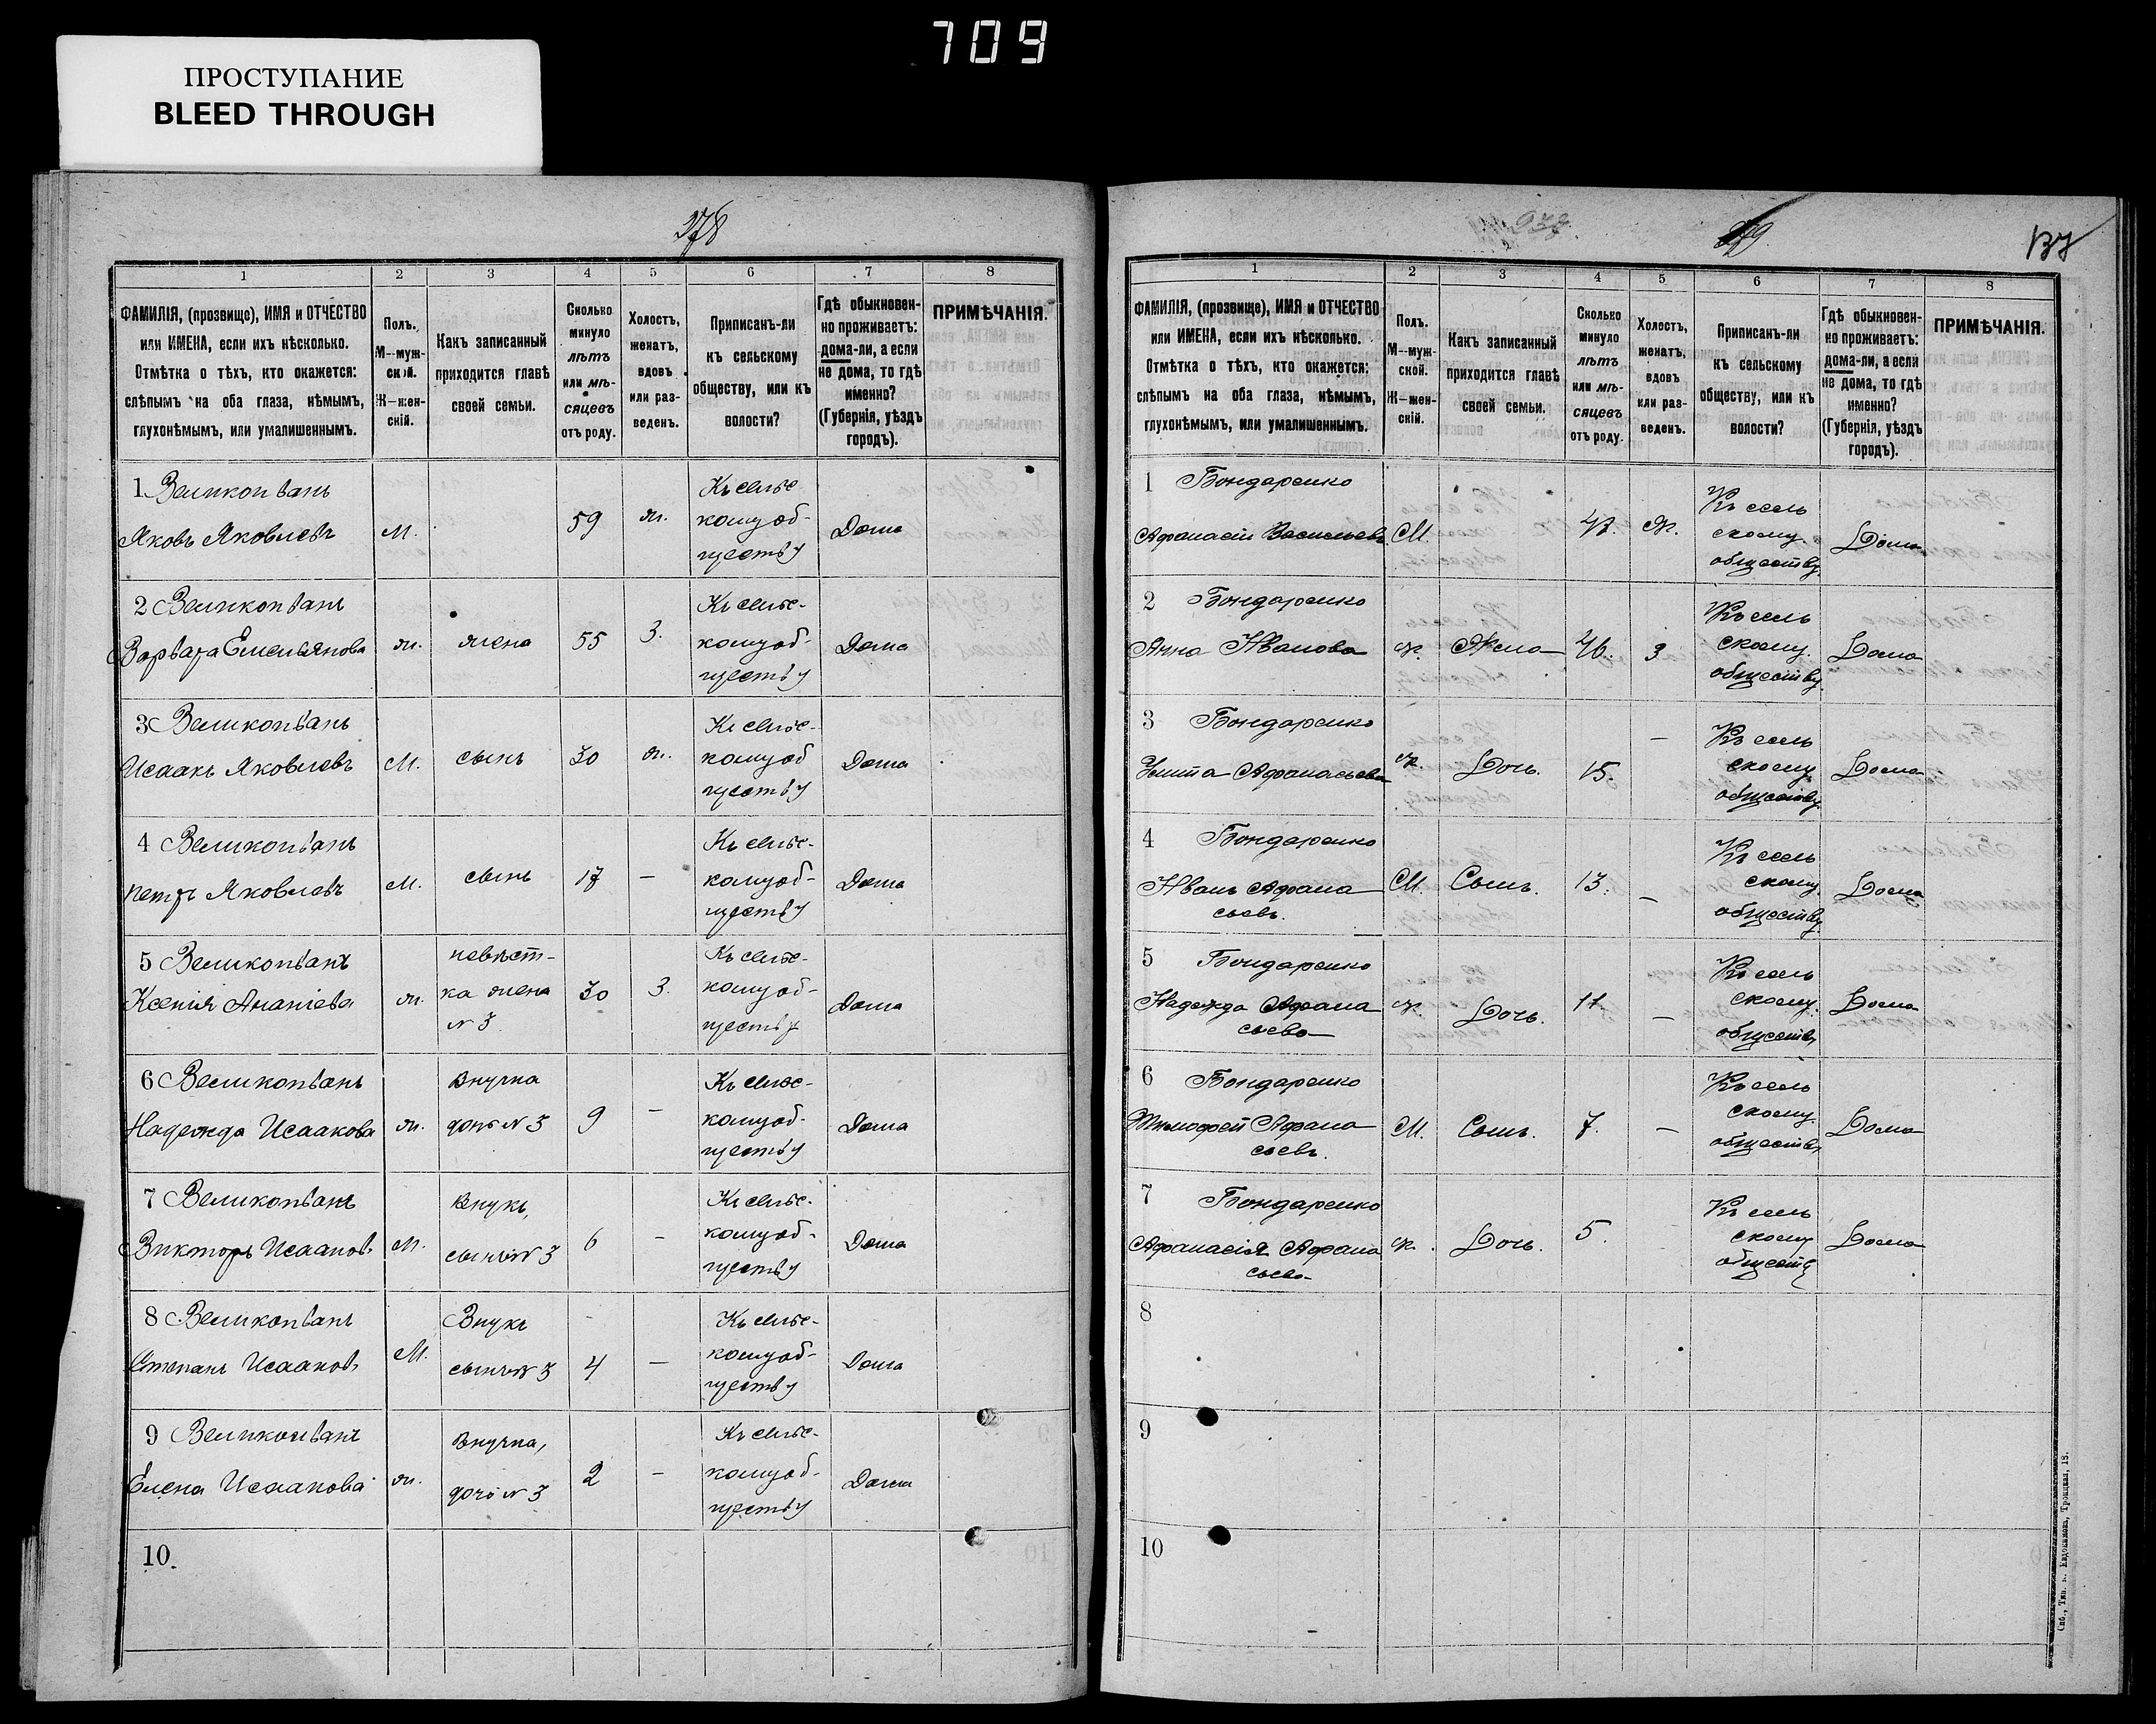 709
ПРОСТУПАНИЕ
BLEED THROUGH
278
1 2 3 4 5 6 7 8
ФАМИЛІЯ, (прозвище), ИМЯ и ОТЧЕСТВО
или ИМЕНА, если ихъ нѣсколько.
Отмѣтка о тѣхъ, кто окажется:
слѣпымъ на оба глаза, нѣмымъ,
глухонѣмымъ, или умалишеннымъ.
Полъ.
М--муж-
ской.
Ж--жен-
скій.
Какъ записанный
приходится главѣ
своей семьи.
Сколько
минуло
лѣтъ
или мѣ-
сяцевъ
отъ роду.
Холостъ,
женатъ,
вдовъ
или раз-
веденъ.
Приписанъ-ли
къ сельскому
обществу, или къ
волости?
Гдѣ обыкновен-
но проживаетъ:
дома-ли, а если
не дома, то гдѣ
именно?
(Губернія, уѣздъ
городъ).
ПРИМѢЧАНІЯ.
1 Великоиванъ
Яковъ Яковлевъ
М.
59
ж.
Къ сельс
комуоб-
ществу
Дома
2 Великоиванъ
Варвара Емельянова
ж.
жена
55
З.
Къ сельс-
комуоб-
ществу
Дома
3 Великоиванъ
Исаакъ Яковлевъ
М.
сынъ
30
ж.
Къ сельс-
комуоб
ществу
Дома
4 Великоиванъ
Петръ Яковлевъ
М.
сынъ
17
—
Къ сельс-
комуоб-
ществу
Дома
5 Великоиванъ
Ксенія Ананіева
ж.
невѣст-
ка жена
№ 3
30
З.
Къ сельс-
комуоб-
ществу
Дома
6 Великоиванъ
Надежда Исаакова
ж.
Внучка
дочь № 3
9
—
Къ сельс-
комуоб-
ществу
Дома
7 Великоиванъ
Викторъ Исааков.
М.
Внукъ,
сынъ № 3
6
-
Къ сельс-
комуоб-
ществу
Дома
8 Великоиванъ
Степанъ Исааков.
М.
Внукъ
сынъ № 3
4
—
Къ сельс-
комуоб-
ществу
Дома
9 Великоиванъ
Елена Исаакова
ж.
Внучка,
дочь № 3
2
-
Къ сельс-
комуоб-
ществу
Дома
10.
279
137
1 2 3 4 5 6 7 8
ФАМИЛІЯ, (прозвище), ИМЯ и ОТЧЕСТВО
или ИМЕНА, если ихъ нѣсколько.
Отмѣтка о тѣхъ, кто окажется:
слѣпымъ на оба глаза, нѣмымъ,
глухонѣмымъ, или умалишеннымъ.
Полъ.
М--муж-
ской.
Ж--жен-
скій.
Какъ записанный
приходится главѣ
своей семьи.
Сколько
минуло
лѣтъ
или мѣ-
сяцевъ
отъ роду.
Холостъ,
женатъ,
вдовъ
или раз-
веденъ.
Приписанъ-ли
къ сельскому
обществу, или къ
волости?
Гдѣ обыкновен-
но проживаетъ:
дома-ли, а если
не дома, то гдѣ
именно?
(Губернія, уѣздъ
городъ).
ПРИМѢЧАНІЯ.
1 Бондаренко
Афанасій Васильевъ
М.
Ж.
Къ сель
скому.
обществу.
Дома
2 Бондаренко
Анна Иванова
ж.
Жена
46.
З
Къ сель
скому.
обществу.
Дома
3 Бондаренко
Афанасьева
ж.
Дочь.
15.
—
Къ сель
скому
обществу.
Дома
4 Бондаренко
Иванъ Афана
сьевъ.
М.
Сынъ.
13.
—
Къ сель
скому.
обществу.
Дома
5 Бондаренко
Надежда Афана
сьева
ж.
Дочь.
11.
—
Къ сель
скому.
обществу
Дома
6 Бондаренко
Тимофей Афана
сьевъ.
М.
Сынъ.
7.
—
Къ сель
скому.
обществу
Дома
7 Бондаренко
Афанасія Афана
сьева
ж.
Дочь.
5.
Къ сель
скому
обществ
Дома
8
9
10
Спб., Тип. Евдокимова, Троицкая, 18.